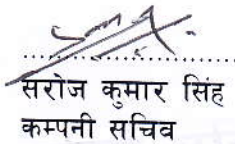 सरोज कुमार सिंह
कम्पनी सचिव